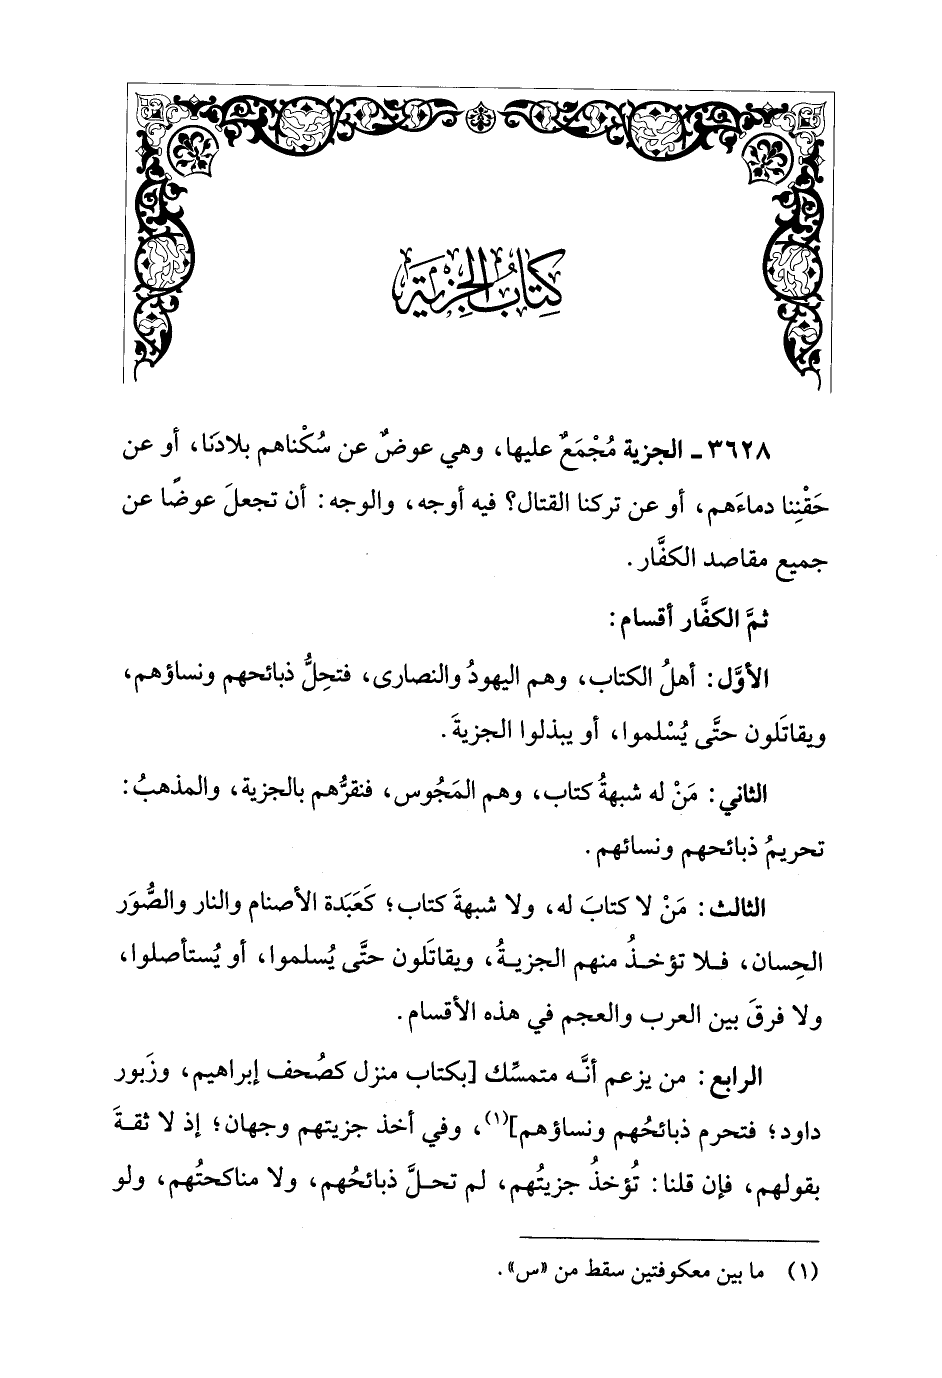 كتاب الجزية
٣٦٢٨ ـ الجزية مُجْمَعٌ عليها، وهي عوضٌ عن سُكْناهم بلادنَا، أو عن
حَقْنِنا دماءَهم، أو عن تركنا القتال؟ فيه أوجه، والوجه: أن تجعلَ عوضًا عن
جميع مقاصد الكفَّار.
ثمَّ الكفَّار أقسام:
الأوَّل: أهلُ الكتاب، وهم اليهودُ والنصارى، فتحِلُّ ذبائحهم ونساؤهم،
ويقاتَلون حتَّى يُسْلموا، أو يبذلوا الجزيةَ.
الثاني: مَنْ له شبهةُ كتاب، وهم المَجُوس، فنقرُّهم بالجزية، والمذهبُ:
تحريمُ ذبائحهم ونسائهم.
الثالث: مَنْ لا كتابَ له، ولا شبهةَ كتاب؛ كَعَبَدة الأصنام والنار والصُّوَر
الحِسان، فلا تؤخذُ منهم الجزيةُ، ويقاتَلون حتَّى يُسلموا، أو يُستأصلوا،
ولا فرقَ بين العرب والعجم في هذه الأقسام.
الرابع: من يزعم أنَّه متمسِّك [بكتاب منزل كصُحف إبراهيم، وزَبور
داود؛ فتحرم ذبائحُهم ونساؤهم](١)، وفي أخذ جزيتهم وجهان؛ إذ لا ثقةَ
بقولهم، فإن قلنا: تُؤخذُ جزيتُهم، لم تحلَّ ذبائحُهم، ولا مناكحتُهم، ولو
(١) ما بين معكوفتين سقط من «س».